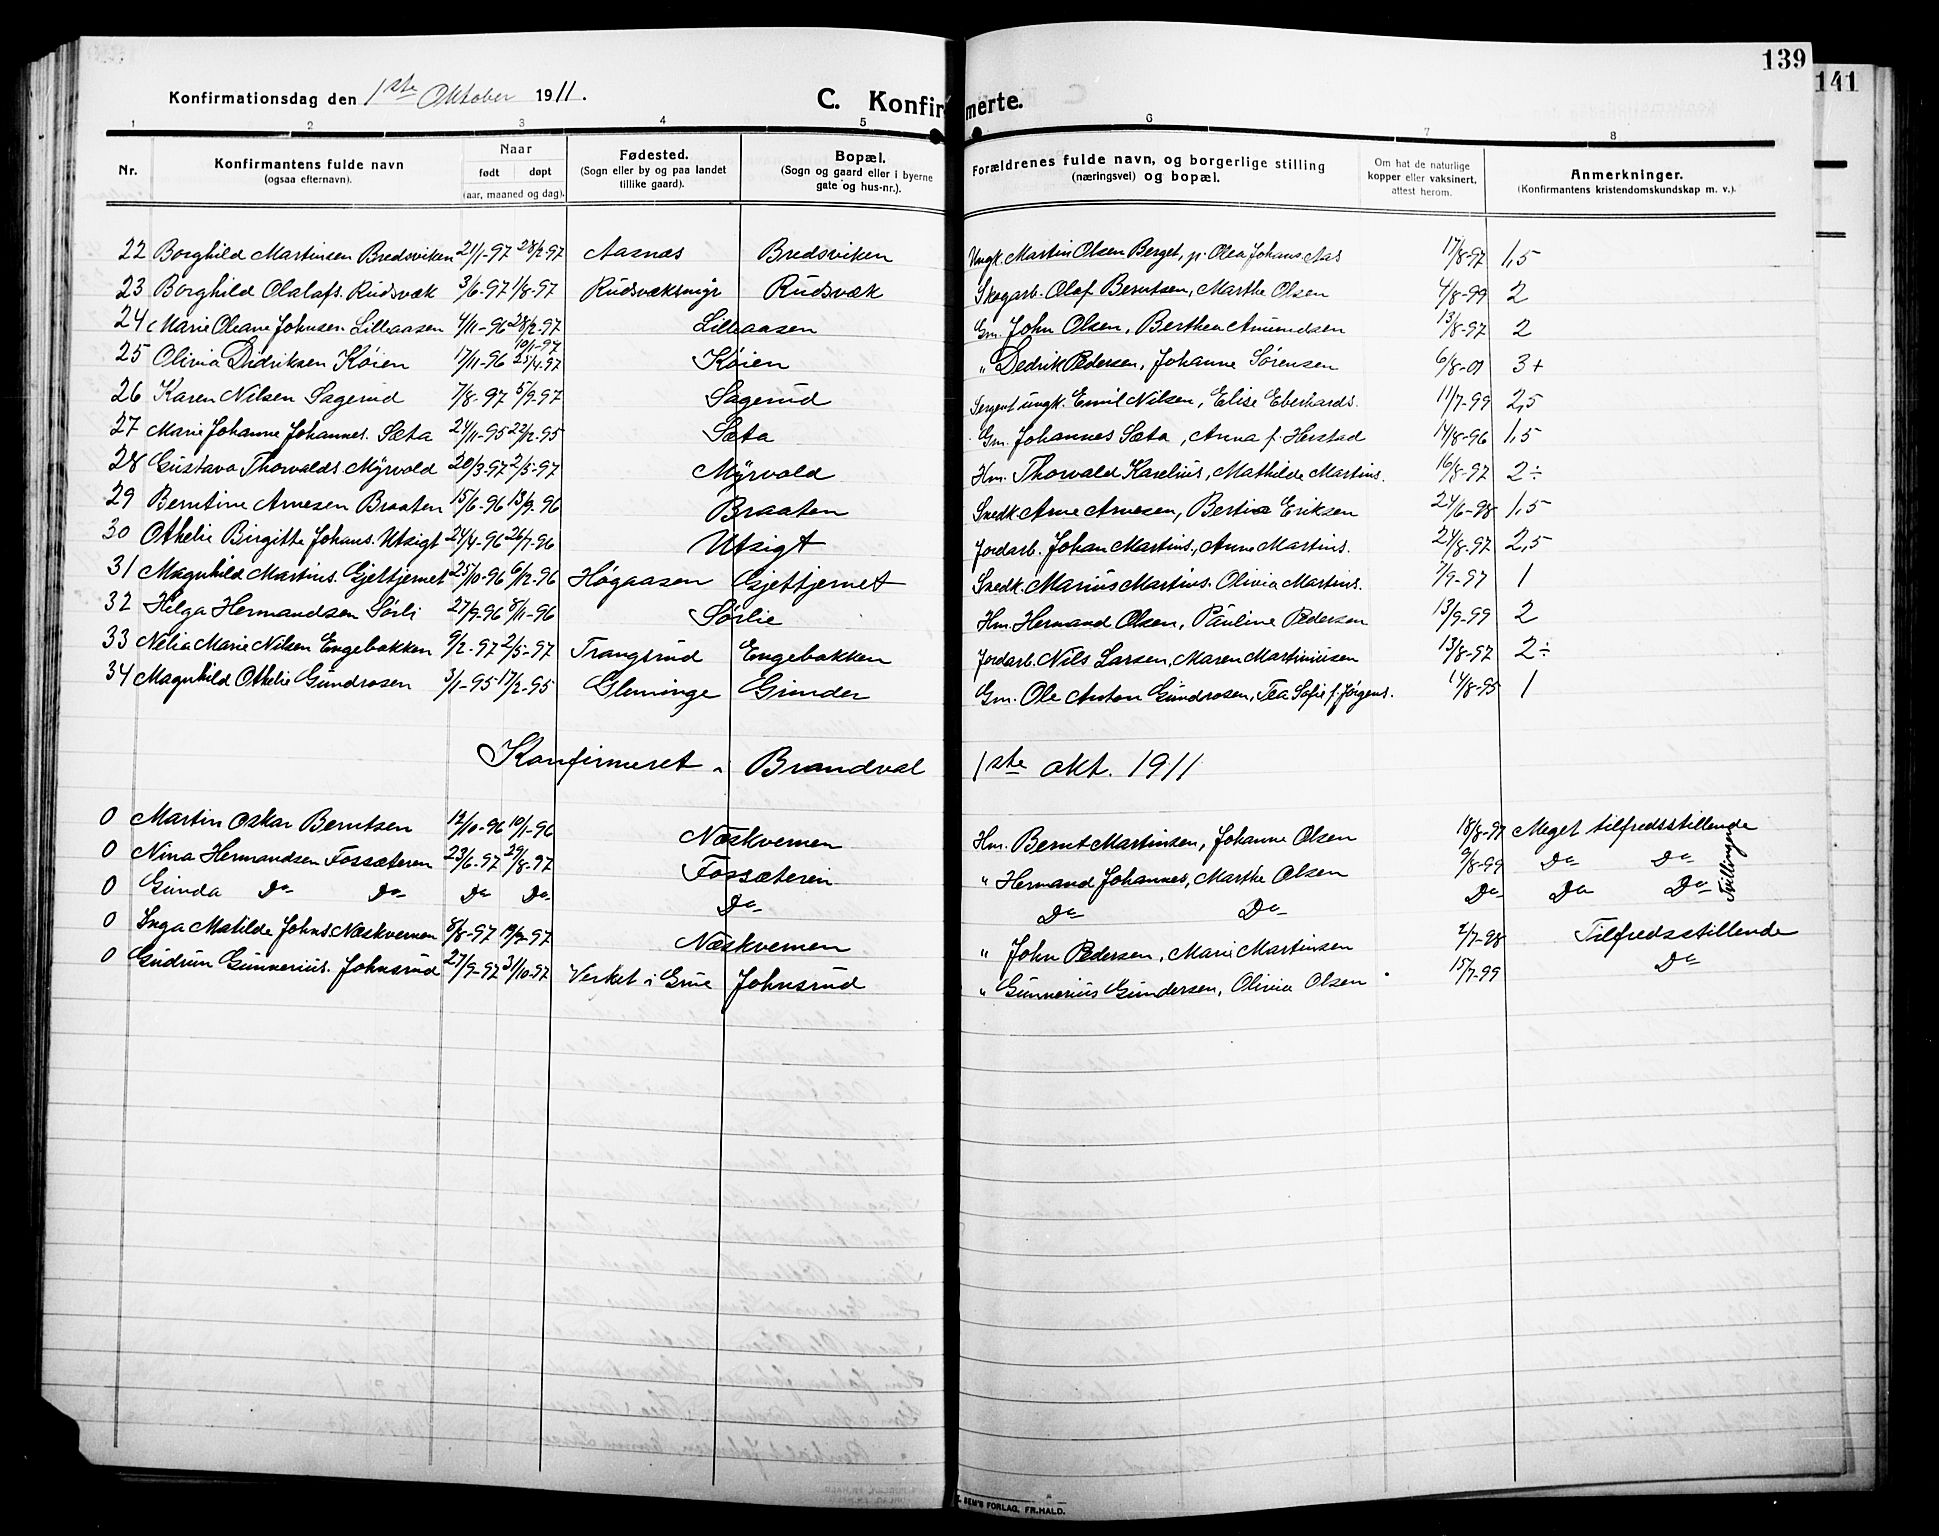 139
141
Konfirmationsdag den 1ste Oktober 1911.
C. Konfirmerte.
1 2 3 4 5 6 7 8
Nr. Konfirmantens fulde navn (ogsaa efternavn). Naar født døpt (aar, maaned og dag). Fødested. (Sogn eller by og paa landet tillike gaard). Bopæl. (Sogn og gaard eller i byerne gate og hus-nr.). Forældrenes fulde navn, og borgerlige stilling (næringsvei) og bopæl. Om hat de naturlige kopper eller vaksinert, attest herom. Anmerkninger. (Konfirmantens kristendomskundskap m. v.).
22 Borghild Martinsen Bredsviken 21/1-97 28/2-97 Aasnæs Bredsviken Ungk. Martin Olsen Berget, p. Olea Johans. Aas 17/8-97 1,5
23 Borghild Olalafs. Rudsvæk 3/6-97 1/8-97 Rudsvæksmyr Rudsvæk Skogarb. Olaf Berntsen, Marthe Olsen 4/8-99 2
24 Marie Oleane Johnsen Lillaasen 4/11-96 28/2-97 Lillaasen Gm. John Olsen, Berthea Amundsen 13/8-97 2
25 Olivia Didriksen Køien 17/11-96 10/1-97 25/4-97 Køien " Dedrik Pedersen, Johanne Sørensen 6/8-01 3+
26 Karen Nilsen Sagerud 7/8-97 5/9-97 Sagerud Sergent ungk. Emil Nilsen, Elise Eberhards. 11/7-99 2,5
27 Marie Johanne Johannes. Sæta 24/11-95 22/2-95 Sæta Gm. Johannes Sæta, Anna f. Herstad 14/8-96 1,5
28 Gustava Thorvalds. Myrvold 20/3-97 2/5-97 Myrvold Hm. Thorvald Karelius, Mathilde Martins. 16/8-97 2÷
29 Berntine Arnesen Braaten 15/6-96 13/9-96 Braaten Snedk. Arne Arnesen, Bertia Eriksen 24/6-98 1,5
30 Othelie Birgitte Johans. Utsigt 24/4-96 26/7-96 Utsigt Jordarb. Johan Martins., Anne Martins. 24/8-97 2,5
31 Magnhild Martins. Gjettjernet 25/10-96 6/12-96 Høgaasen Gjettjernet Snedk. Marius Martins. Olivia Martins. 7/9-97 1
32 Helga Hermandsen Sørli 27/9-96 8/11-96 Sørlie Hm. Hermand Olsen, Pauline Pedersen 13/9-99 2
33 Nelia Marie Nilsen Engebakken 9/2-97 2/5-97 Trangsrud Engebakken Jordarb. Nils Larsen, Maren Martiniusen 13/8-97 2÷
34 Magnhild Othelie Gundrosen 3/1-95 17/2-95 Gleminge Gunder Gm. Ole Anton Gundrosen, Tea Sofie f. Jørgens. 14/8-95 1
Konfirmeret i Brandval 1ste okt. 1911
0 Martin Oskar Berntsen 12/10-96 10/1-96 Næskvernen Hm. Bernt Martinsen, Johanne Olsen 18/8-97 Meget tilfredsstillende
0 Nina Hermandsen Fossæteren 23/6-97 29/8-97 Fossæteren " Hermand Johannes, Marthe Olsen 9/8-99 Do Do Tvillinger
0 Gunda Do Do Do Do Do Do Do Do Do Do
0 Inga Matilde Johns. Næskvernen 8/8-97 19/9-97 Næskvernen " John Pedersen, Marie Martinsen 2/7-98 Tilfredsstillende
0 Gudrun Gunnerius. Johnsrud 27/9-97 31/10-97 Verket i Grue Johnsrud " Gunnerius Gundersen, Olivia Olsen 15/7-99 Do
SEM'S FORLAG. FR.HALD.